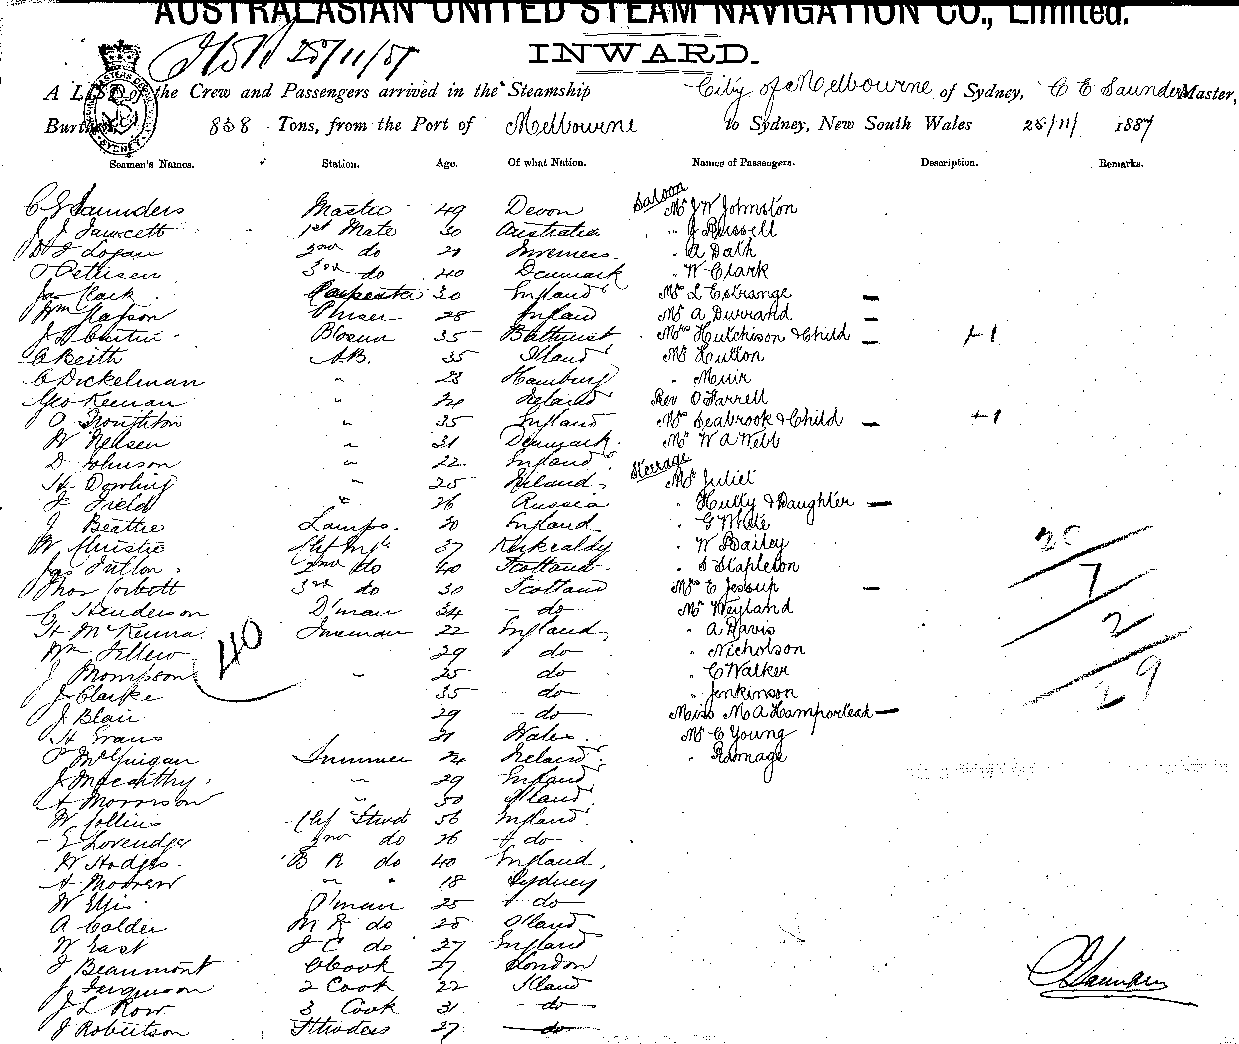 AUSTRALASIAN UNITED STEAM NAVIGATION CO., Limited.
25/11/87
INWARD.
A LIST of the Crew and Passengers arrived in the Steamship City of Melbourne of Sydney, C E Saunders Master,
Burthen 838 Tons, from the Port of Melbourne to Sydney, New South Wales 25/11/ 1887
Seamen's Names. Station. Age. Of what Nation. Names of Passengers. Description. Remarks.
Saloon
C E Saunders Master 49 Devon Mr J W Johnston
J J Fawcett 1st Mate 30 Australia " J Russell
D J Logan 2nd do Inverness " A Dath
Pettisen 3rd do 40 Denmark " W Clark
Jas Clark Carpenter 30 England Mr L Estrange —
Wm 28 England Mr A Durrand —
J D Bosun 35 Bathurst Mrs Hutchison & Child — +1
A Beith A.B. 35 Mr Hutton
A Dickelman " 23 Hamburg " Muir
Geo Keenan " Ireland Rev O Farrell
O Troughton " 35 England Mrs Seabrook & Child — +1
W Neilsen " 31 Denmark Mr W A Webb
D Johnson " 22 England
Steerage
H Dowling " 25 Ireland Mr Juliet
J Field " 26 Russia " Hutty & Daughter —
J Beattie Lamps. 20 England " G White
W Christie 37 Kirkcaldy " W Bailey
Jas 2nd do 40 Scotland " S Stapleton
Thos Corbett 3rd do 30 Scotland Mrs E Jessup —
G Henderson D'man 34 do Mr Weyland
H McKenna Fireman 22 England " A Davis
Wm 29 do " Nicholson
J Thompson " 25 do " C Walker
J Clarke 35 do " Jenkinson
J Blair 29 do Miss M A —
H Evans Wales Mr C Young
P McGuigan Trimmer Ireland " Ramage
J Macarthy " 29 England
A Morrison " 30
W Collins Chf Stwd 56 England
E 2nd do 26 do
W Hodges B R do 40 England
A " " 18 Sydney
W Ellis P'man 25 do
A Calder do
W East do 27 England
J Beaumont Cook 27 London
J Ferguson 2 Cook 22
J L Row 3 Cook 31 do
J Robertson 27 do
40
20
7
2
29
C E Saunders